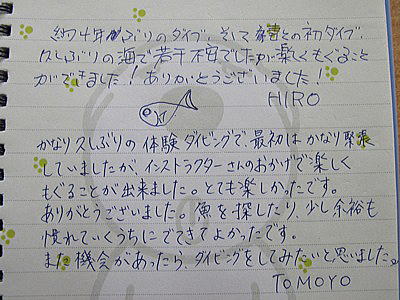 約4年ぶりのダイブ、そして との初ダイブ。
久しぶりの海で若干不安でしたが楽しくもぐること
ができました！ありがとうございました！
HIRO
かなり久しぶりの体験ダイビングで、最初はかなり緊張
していましたが、インストラクターさんのおかげで楽しく
もぐることが出来ました。とても楽しかったです。
ありがとうございました。魚を探したり、少し余裕も
慣れていくうちにでてきてよかったです。
また機会があったら、ダイビングをしてみたいと思いました。
TOMOYO